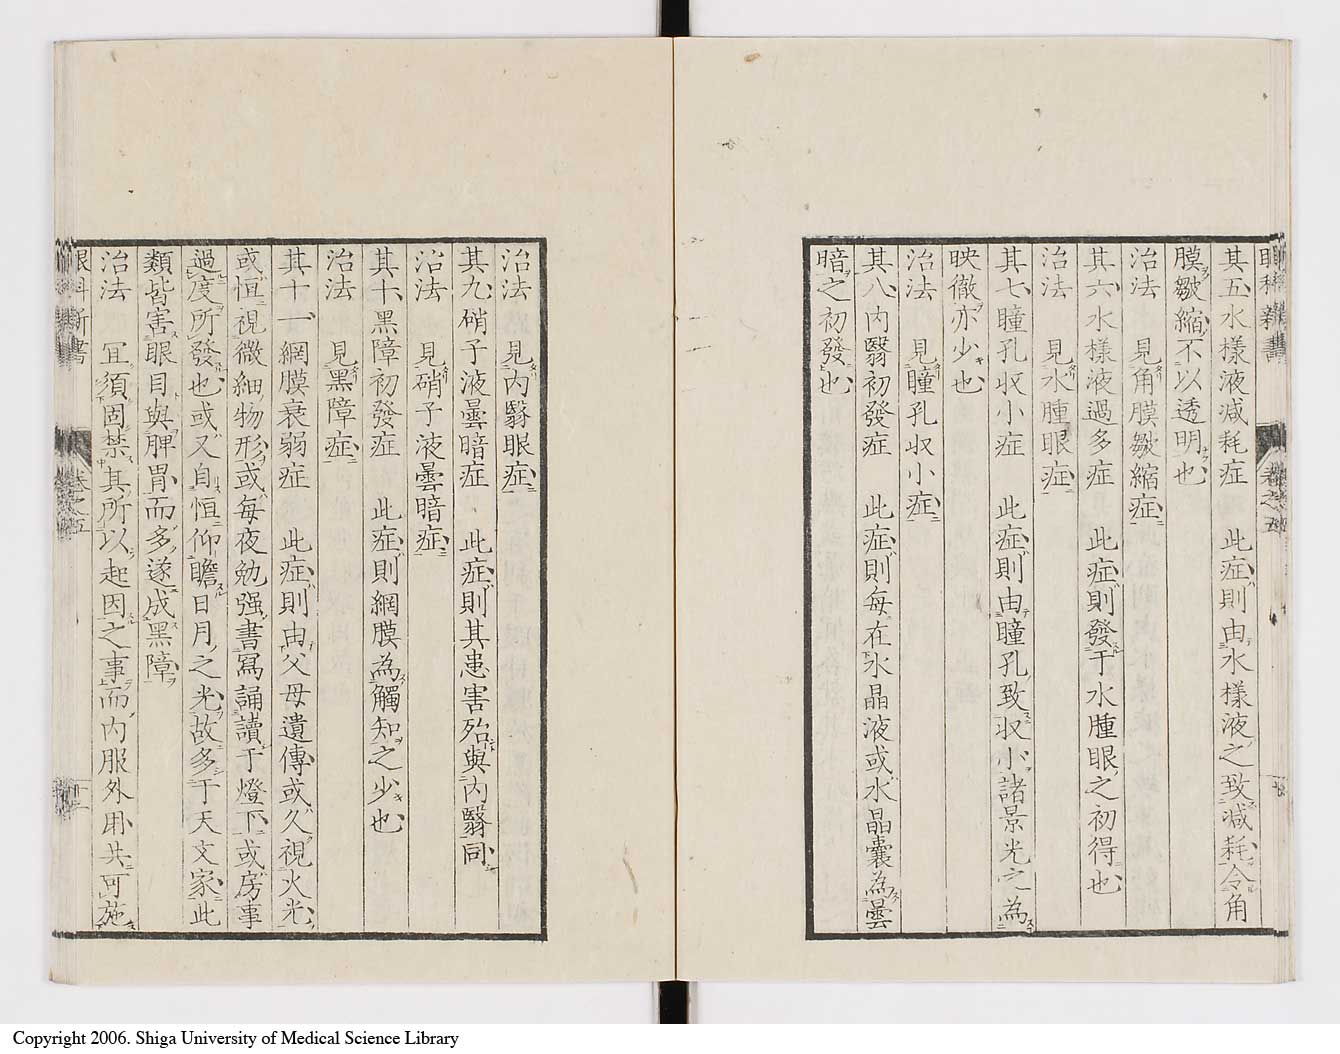 眼科新書
卷之五
其五水樣液减耗症　此症則由水樣液之致减耗令角
膜皺縮不以透明也
治法　見角膜皺縮症
其六水樣液過多症　此症則發于水腫眼之初得也
治法　見水腫眼症
其七瞳孔収小症　此症則由瞳孔致収小諸景光之為
映徹亦少也
治法　見瞳孔収小症
其八内翳初發症　此症則每在氷晶液或水晶囊為曇
暗之初發也
治法　見内翳眼症
其九硝子液曇暗症　此症則其患害殆與内翳同
治法　見硝子液曇暗症
其十黑障初發症　此症則網膜為觸知之少也
治法　見黑障症
其十一網膜衰弱症　此症則由父母遺傳或久視火光
或恒視微細物形或每夜勉强書寫誦讀于燈下或房事
過度所發也或又自恒仰瞻日月之光故多于天文家此
類皆害眼目與脾胃而多遂成黑障
治法　冝須固禁其所以起因之事而内服外用共可施
眼科新書
卷之五
Copyright 2006. Shiga University of Medical Science Library